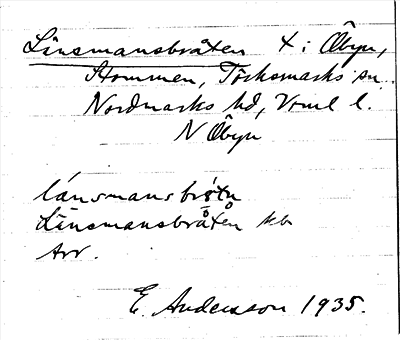 Länsmansbråten × i Åbyn,
Stommen, Töcksmarks sn
Nordmarks hd, Vrml l.
N Åbyn
länsmansbrötn
Länsmansbråten kb
Arr.
E. Andersson 1935.